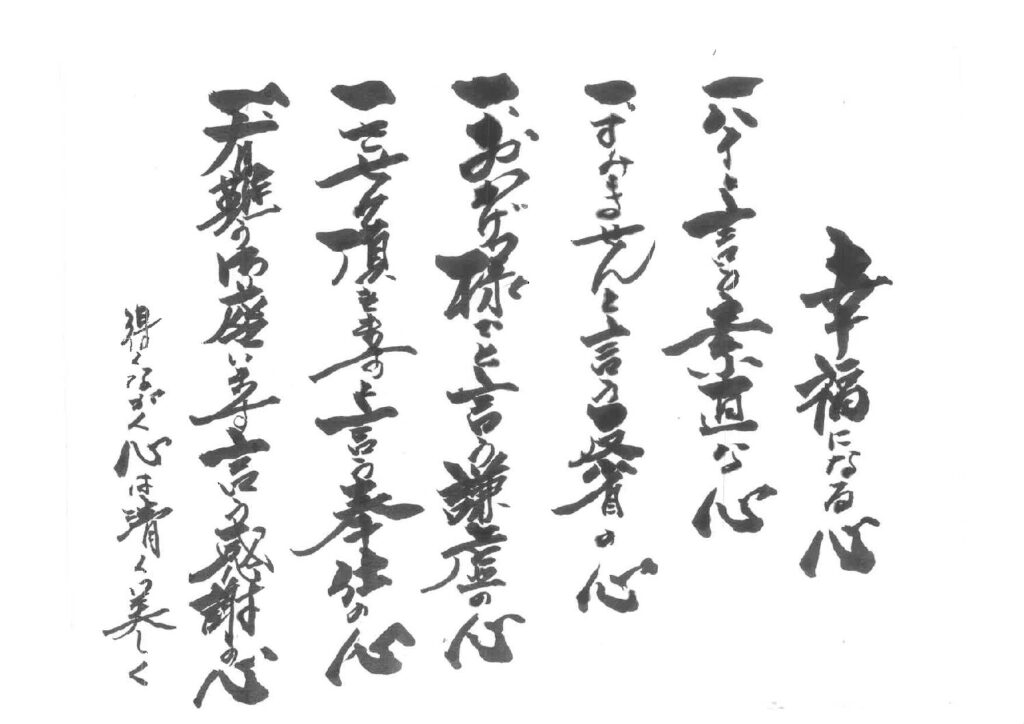 幸福になる心
一ハイと言う素直な心
一、すみませんと言う反省の心
一、おかげ様でと言う謙虚の心
一させて頂きますと言う奉仕の心
一、有難う御座いますと言う感謝の心
ながく心は清く美しく